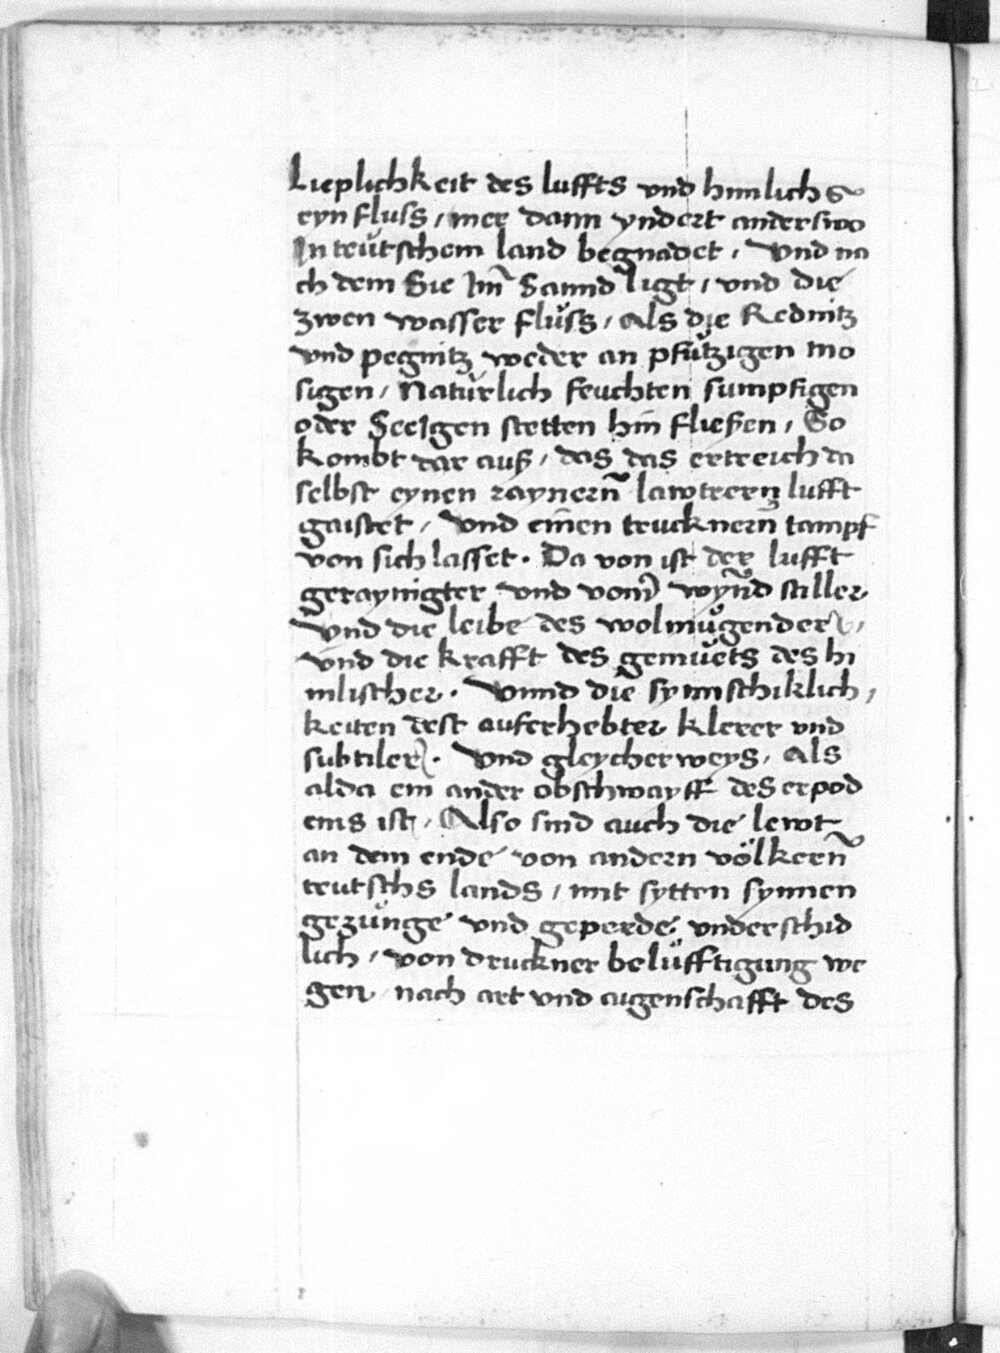 Lieplichkeit des luffts vnd himlichs
eynfluss / mer dann yndert anderswo
In teütschem land begnadet / Vnd na
ch dem Sie Im̃ Sannd ligt / vnd die
zwen wasser flüss / Als die Rednitz
vnd pegnitz weder an pfützigen mo
sigen / Natürlich feuchten sumpfigen
oder Seeigen stetten hin fließen / So
kombt dar auß / das das ertreich da
selbst eynen raynern̄ lawtrern lufft
gaistet / Vnd einen trucknern̄ tampf
von sich lasset. Da von ist der lufft
geraynigter vnd vom wynd stiller
Vnd die leibe des wolmügender /
vnd die krafft des gemüets des hi
mlischer. Vnnd die synnschiklich
keiten dest auferhebter klerer vnd
subtiler. Vnd gleycherweys / Als
alda ein ander obschwayff des erpod
ems ist / Also sind auch die lewt
an dem ende von andern völkern̄
teutschs lands / mit sytten synnen
gezünge vnd geperde vnderschid
lich / von druckner belüfftigung we
gen / nach art vnd augenschafft des